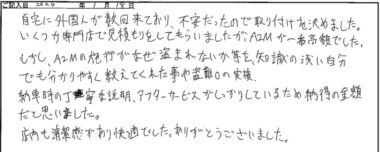 ご記入日 2026 年 1 月 18 日
自宅に外国人が数回来ており、不安だったので取り付けを決めました。
いくつか専門店で見積もりをしてもらいましたがA2Mが一番高額でした。
しかし、A2Mの施行がなぜ盗まれないか等を、知識の浅い自分
でも分かりやすく教えてくれた事や盗難0の実績、
納車時の丁寧な説明、アフターサービスがしっかりしているため納得の金額
だと思いました。
店内も清潔感があり快適でした。ありがとうございました。